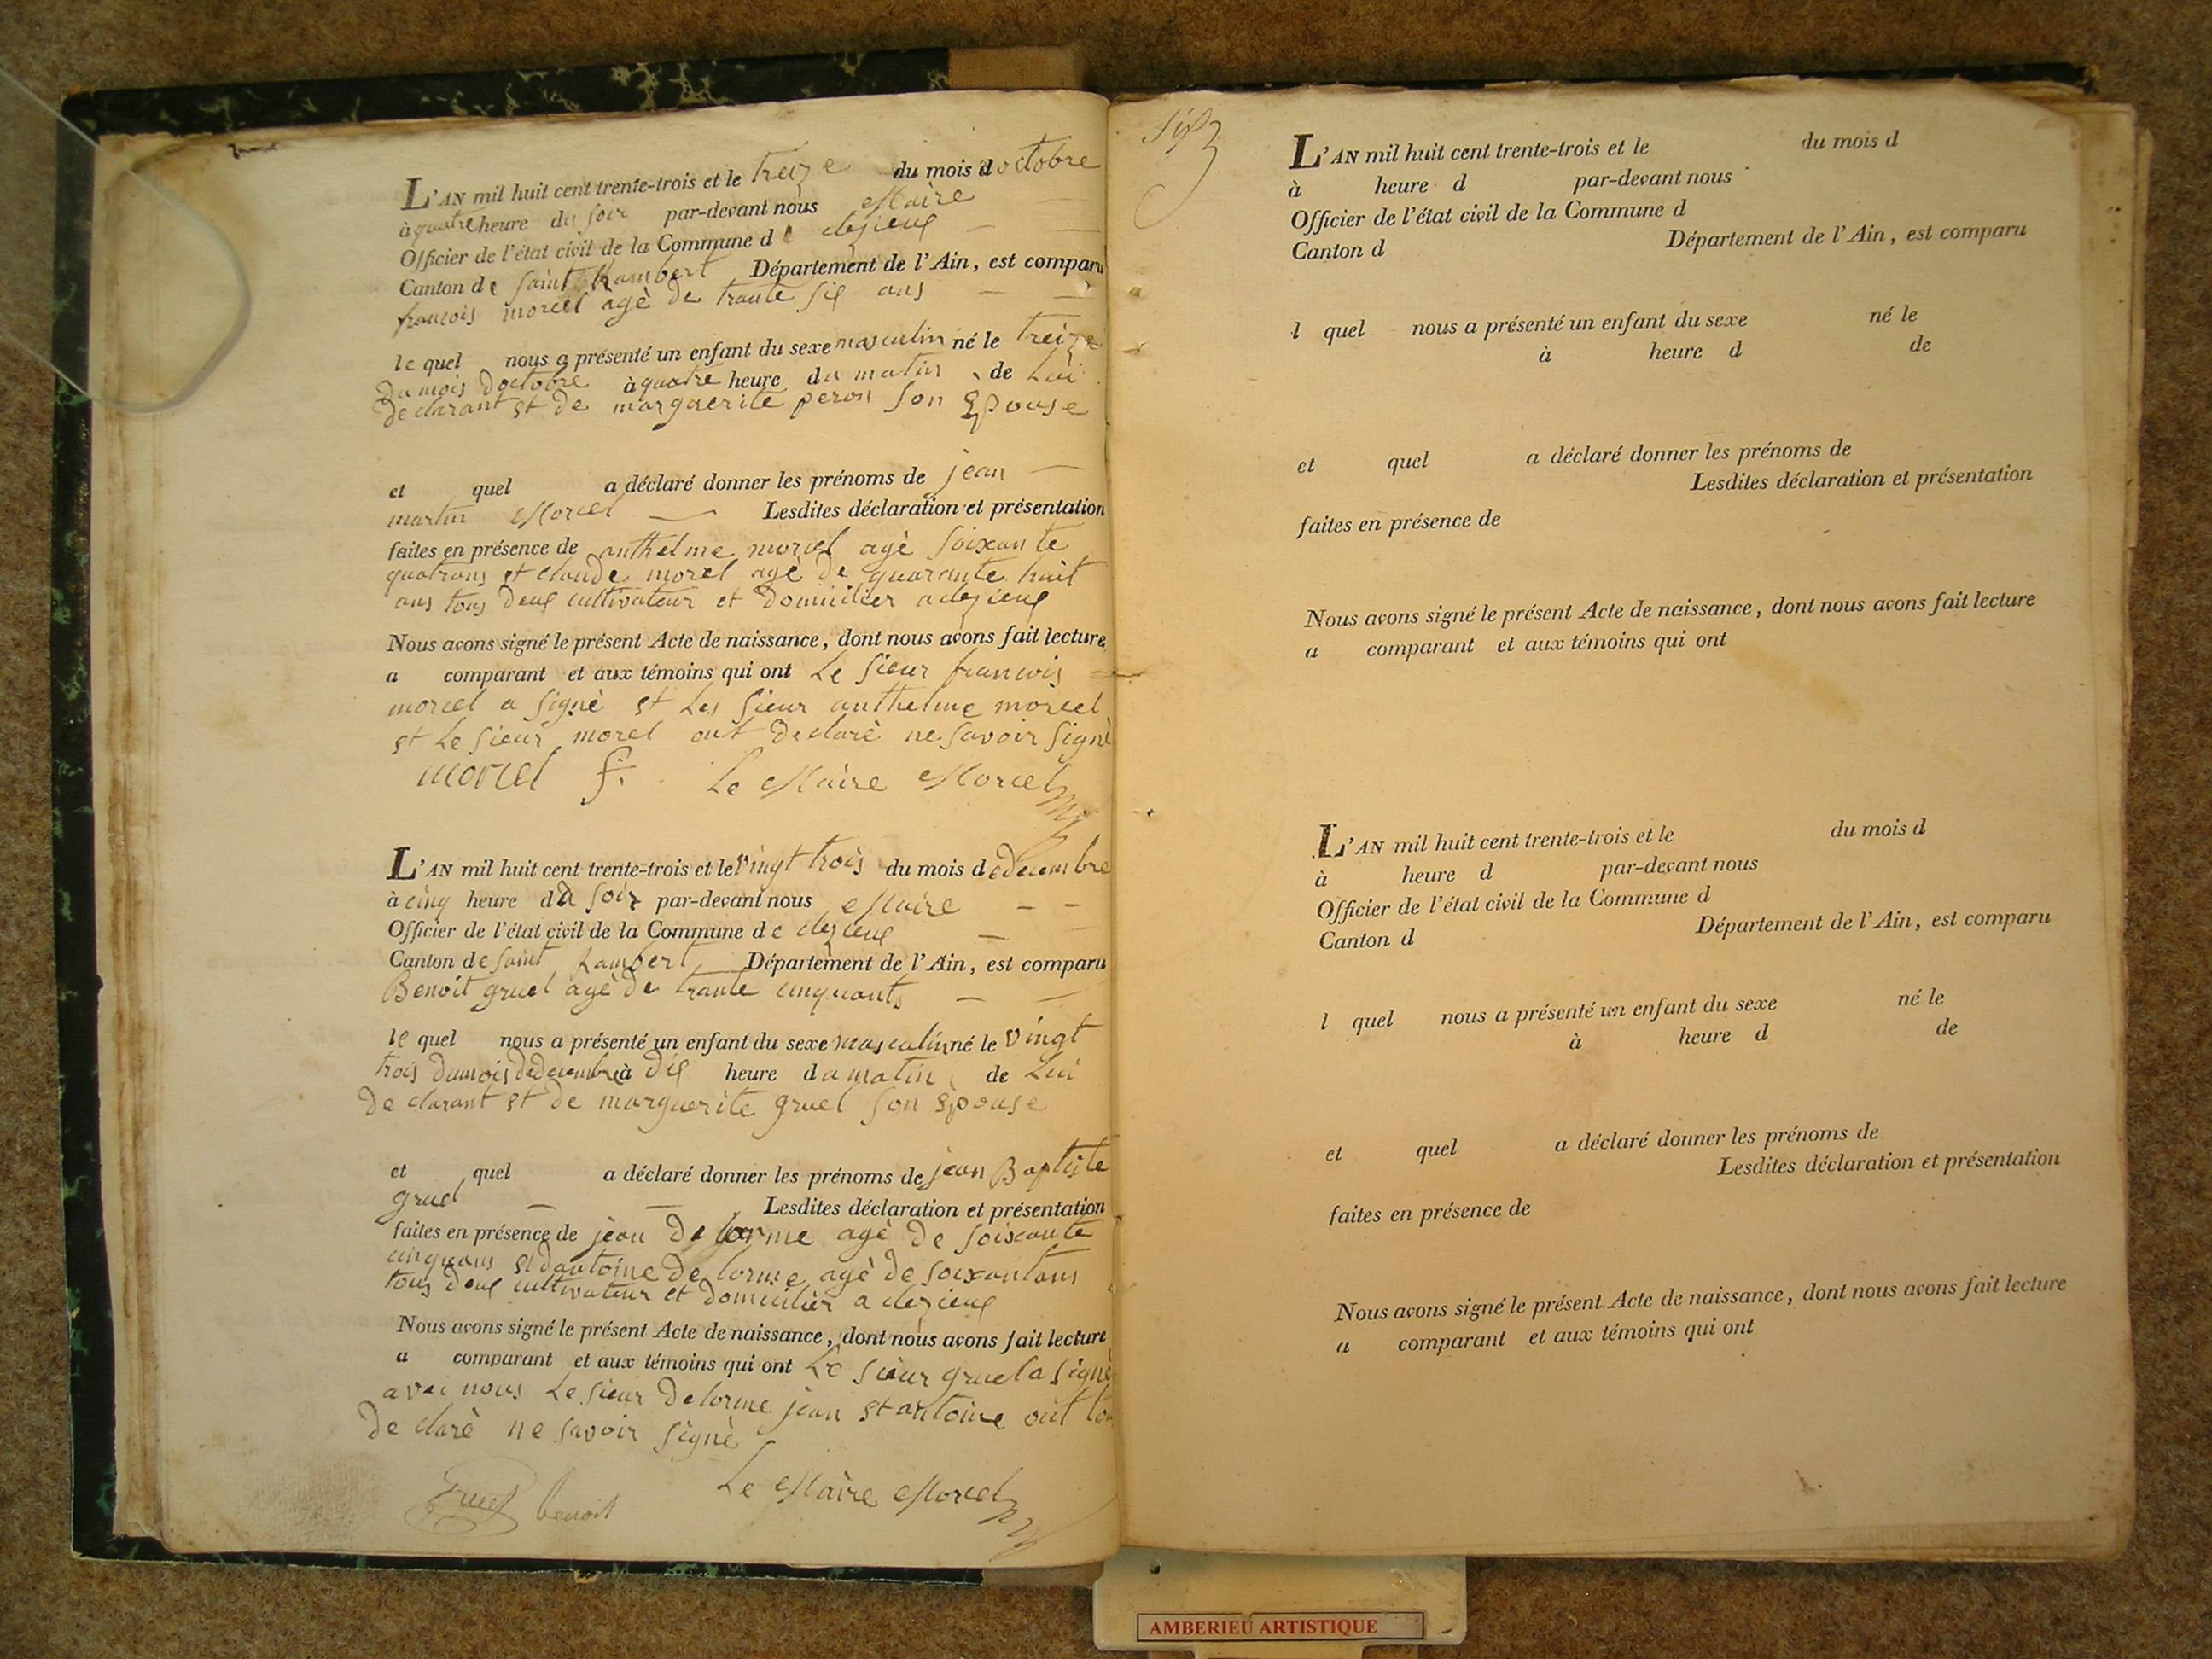 L'AN mil huit cent trente-trois et le treize du mois d octobre
à quatre heure du soir par-devant nous Maire
Officier de l'état civil de la Commune de clezieux
Canton de saint Rambert Département de l'Ain, est comparu
francois morcel agè de trante six ans
le quel nous a présenté un enfant du sexe masculin né le treize
du mois doctobre à quatre heure du matin de Lui
declarant et de marguerite peron son Epouse
et quel a déclaré donner les prénoms de jean
martin Morcel Lesdites déclaration et présentation
faites en présence de anthelme morcel agè soixante
quatrans et claude morel agè de quarante huit
ans tous deux cultivateur et domicilier a clezieux
Nous avons signé le présent Acte de naissance, dont nous avons fait lecture
a comparant et aux témoins qui ont Le sieur francois
morcel a signè et Les sieur anthelme morcel
et Le sieur morel ont declarè ne savoir signè
morcel f. Le Maire Morcel
L'AN mil huit cent trente-trois et le vingt trois du mois de decembre
à cinq heure du soir par-devant nous Maire
Officier de l'état civil de la Commune de clezieux
Canton de saint Rambert Département de l'Ain, est comparu
Benoit gruel agè de trante cinquants
le quel nous a présenté un enfant du sexe masculin né le vingt
trois du mois de decembre à dix heure du matin de Lui
declarant et de marguerite gruel son epouse
et quel a déclaré donner les prénoms de jean Baptiste
gruel Lesdites déclaration et présentation
faites en présence de jean De lorme agè de soixante
cinquans et dantoine De lorme agè de soixantans
tous deux cultivateur et domicilier a clezieux
Nous avons signé le présent Acte de naissance, dont nous avons fait lecture
a comparant et aux témoins qui ont Le sieur gruel a signè
avec nous Le sieur Delorme jean et antoine ont
declarè ne savoir signè
Gruel benoit Le Maire Morcel
L'AN mil huit cent trente-trois et le du mois d
à heure d par-devant nous
Officier de l'état civil de la Commune d
Canton d Département de l'Ain, est comparu
l quel nous a présenté un enfant du sexe né le
à heure d de
et quel a déclaré donner les prénoms de
Lesdites déclaration et présentation
faites en présence de
Nous avons signé le présent Acte de naissance, dont nous avons fait lecture
a comparant et aux témoins qui ont
L'AN mil huit cent trente-trois et le du mois d
à heure d par-devant nous
Officier de l'état civil de la Commune d
Canton d Département de l'Ain, est comparu
l quel nous a présenté un enfant du sexe né le
à heure d de
et quel a déclaré donner les prénoms de
Lesdites déclaration et présentation
faites en présence de
Nous avons signé le présent Acte de naissance, dont nous avons fait lecture
a comparant et aux témoins qui ont
AMBERIEU ARTISTIQUE